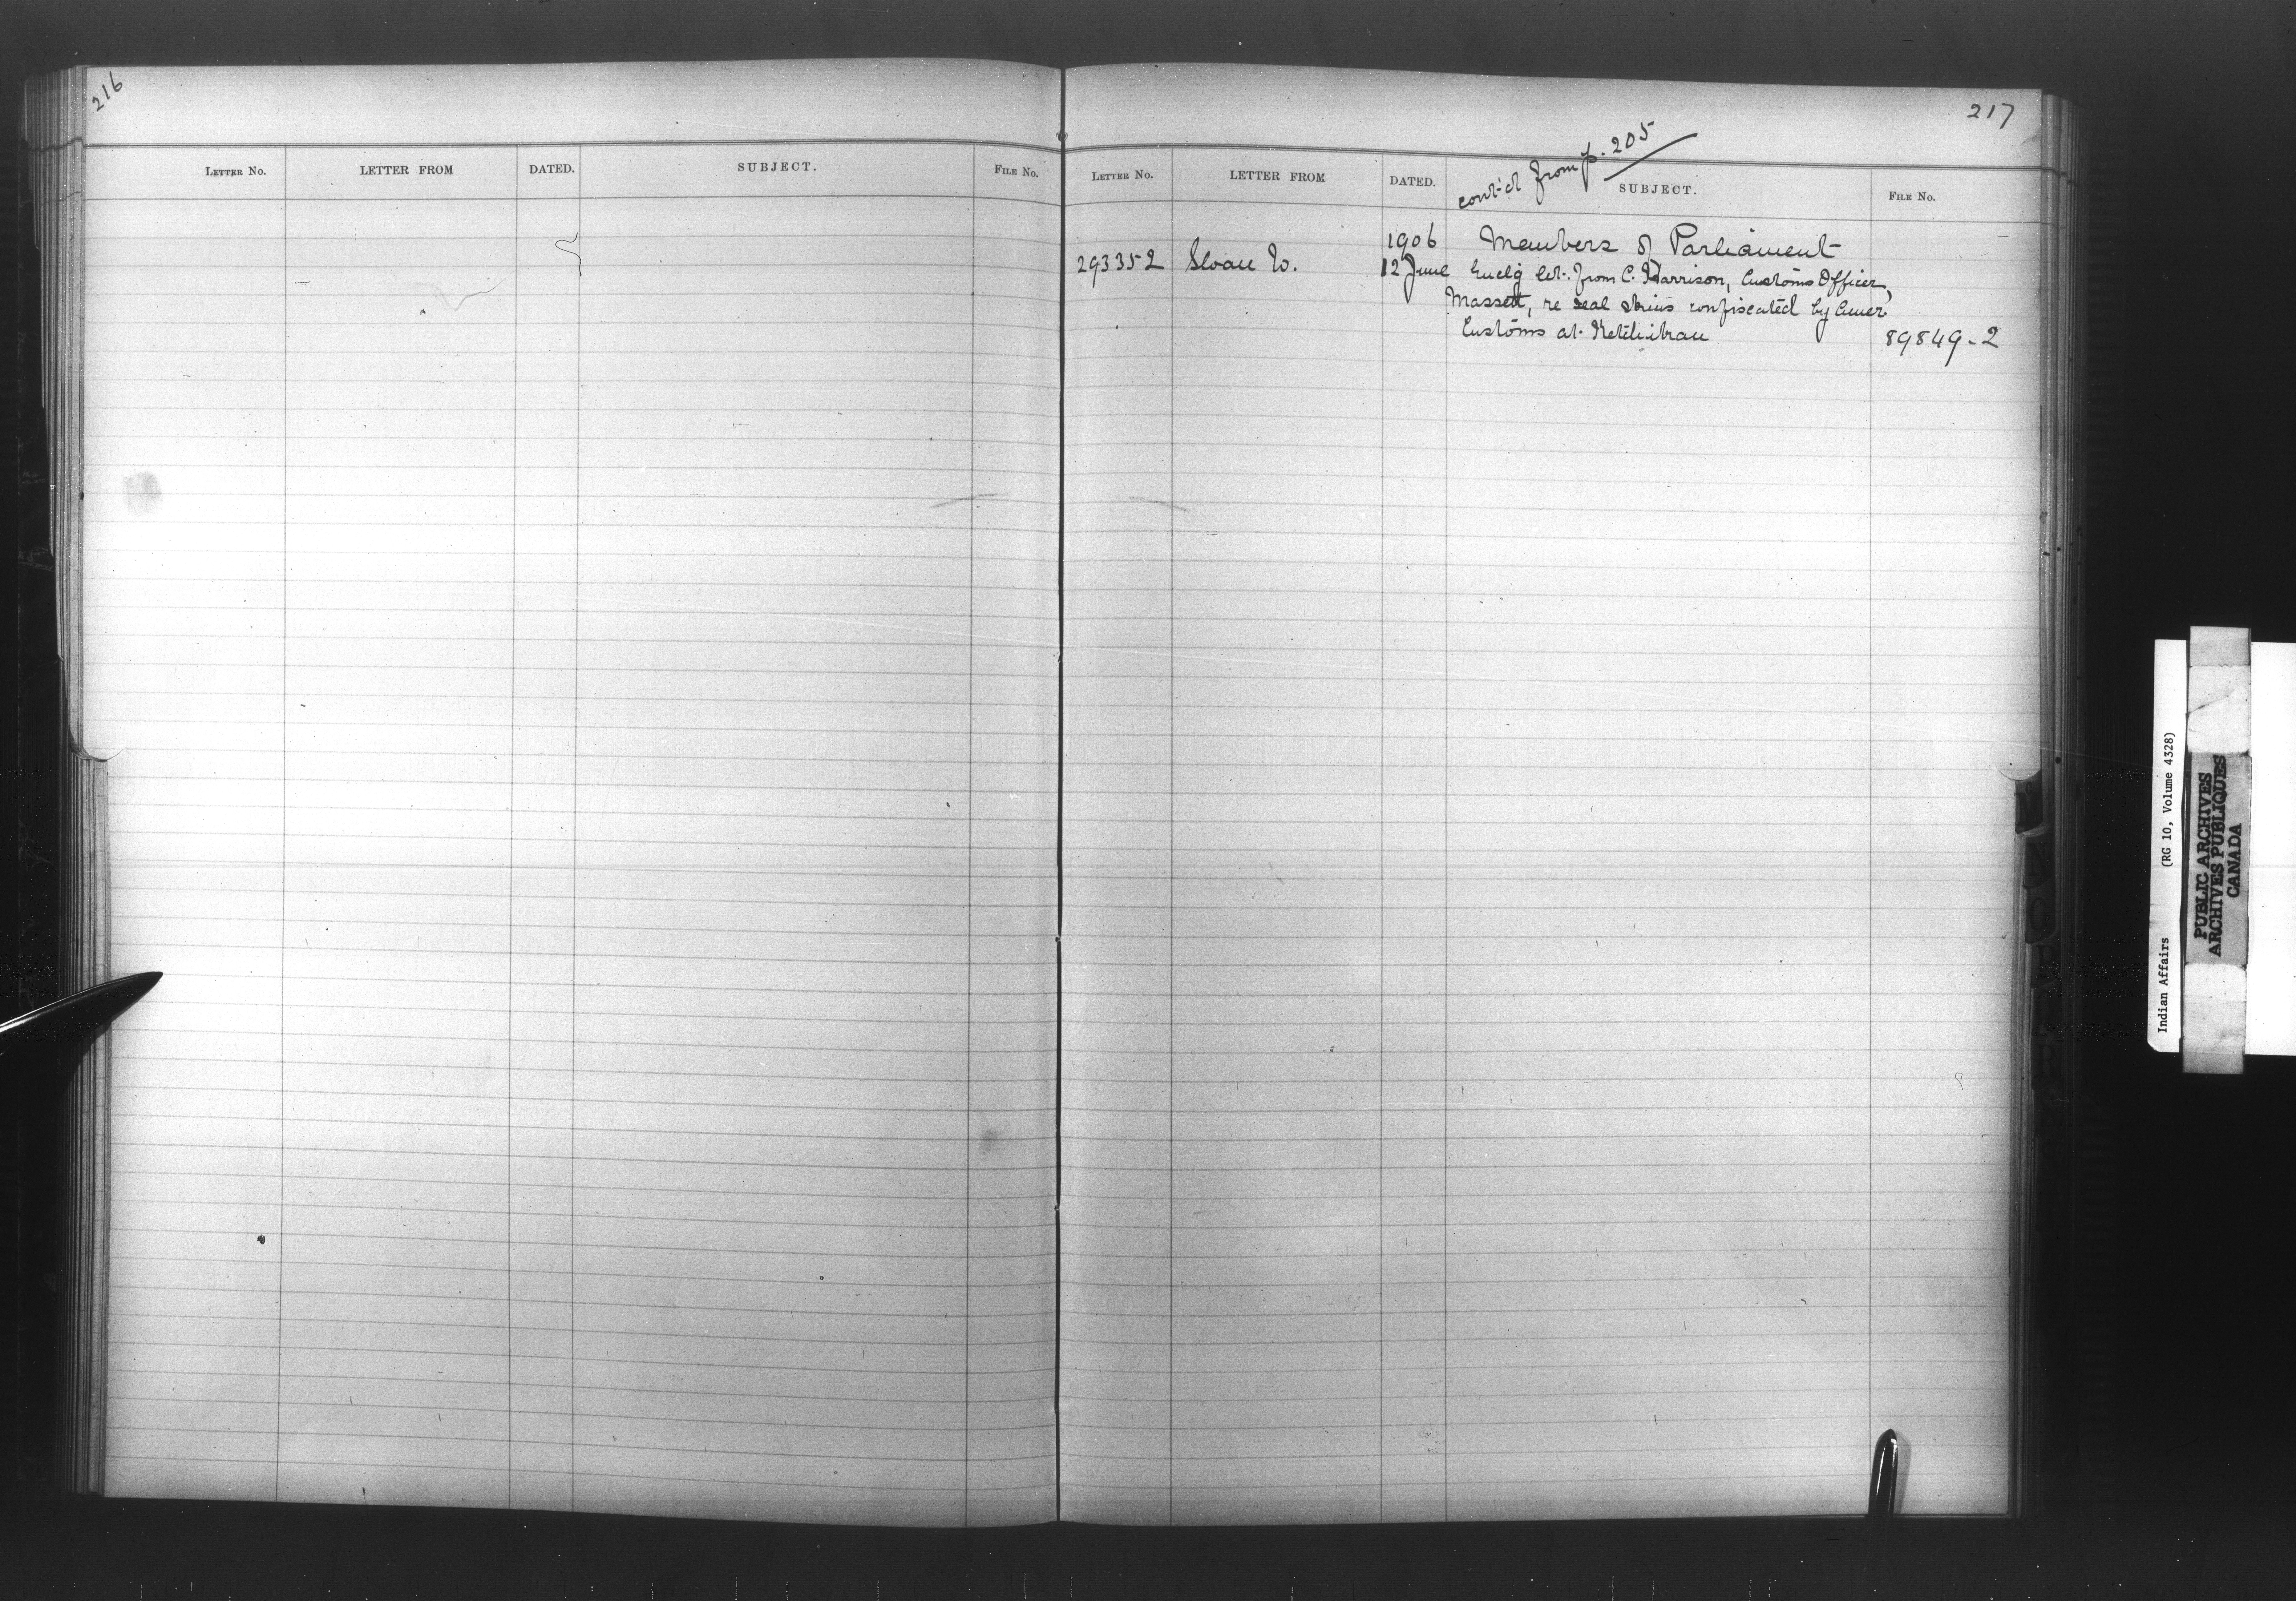 216
LETTER NO. LETTER FROM DATED. SUBJECT. FILE NO.
217
cont'd from p. 205
LETTER NO. LETTER FROM DATED. SUBJECT. FILE NO.
1906 Members of Parliament
293352 Sloan W. 12 June Enclg let. from C. Harrison, Customs Officer,
Massett, re seal skins confiscated by Amer.
Customs at Ketchikan 89849-2
N
O
P
R
Indian Affairs (RG 10, Volume 4328)
PUBLIC ARCHIVES
ARCHIVES PUBLIQUES
CANADA